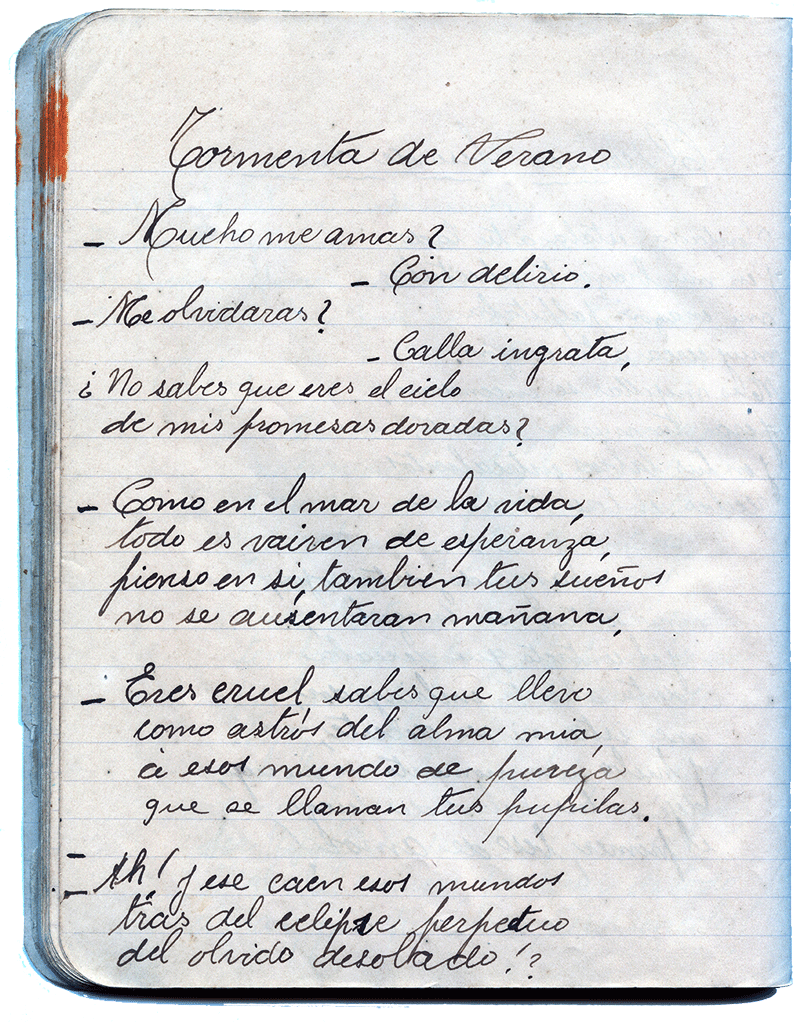 Tormenta de Verano
- Mucho me amas?
- Con delirio.
- Me olvidaras?
- Calla ingrata,
¿ No sabes que eres el cielo
de mis promesas doradas?
- Como en el mar de la vida,
todo es vaiven de esperanza,
pienso en si, tambien tus sueños
no se ausentaran mañana,
- Eres cruel sabes que llevo
como astrós del alma mia,
à esos mundo de pureza
que se llaman tus pupilas.
- Ah! y ese caen esos mundos
trás del eclipse perpetuo
del olvido desolado!?